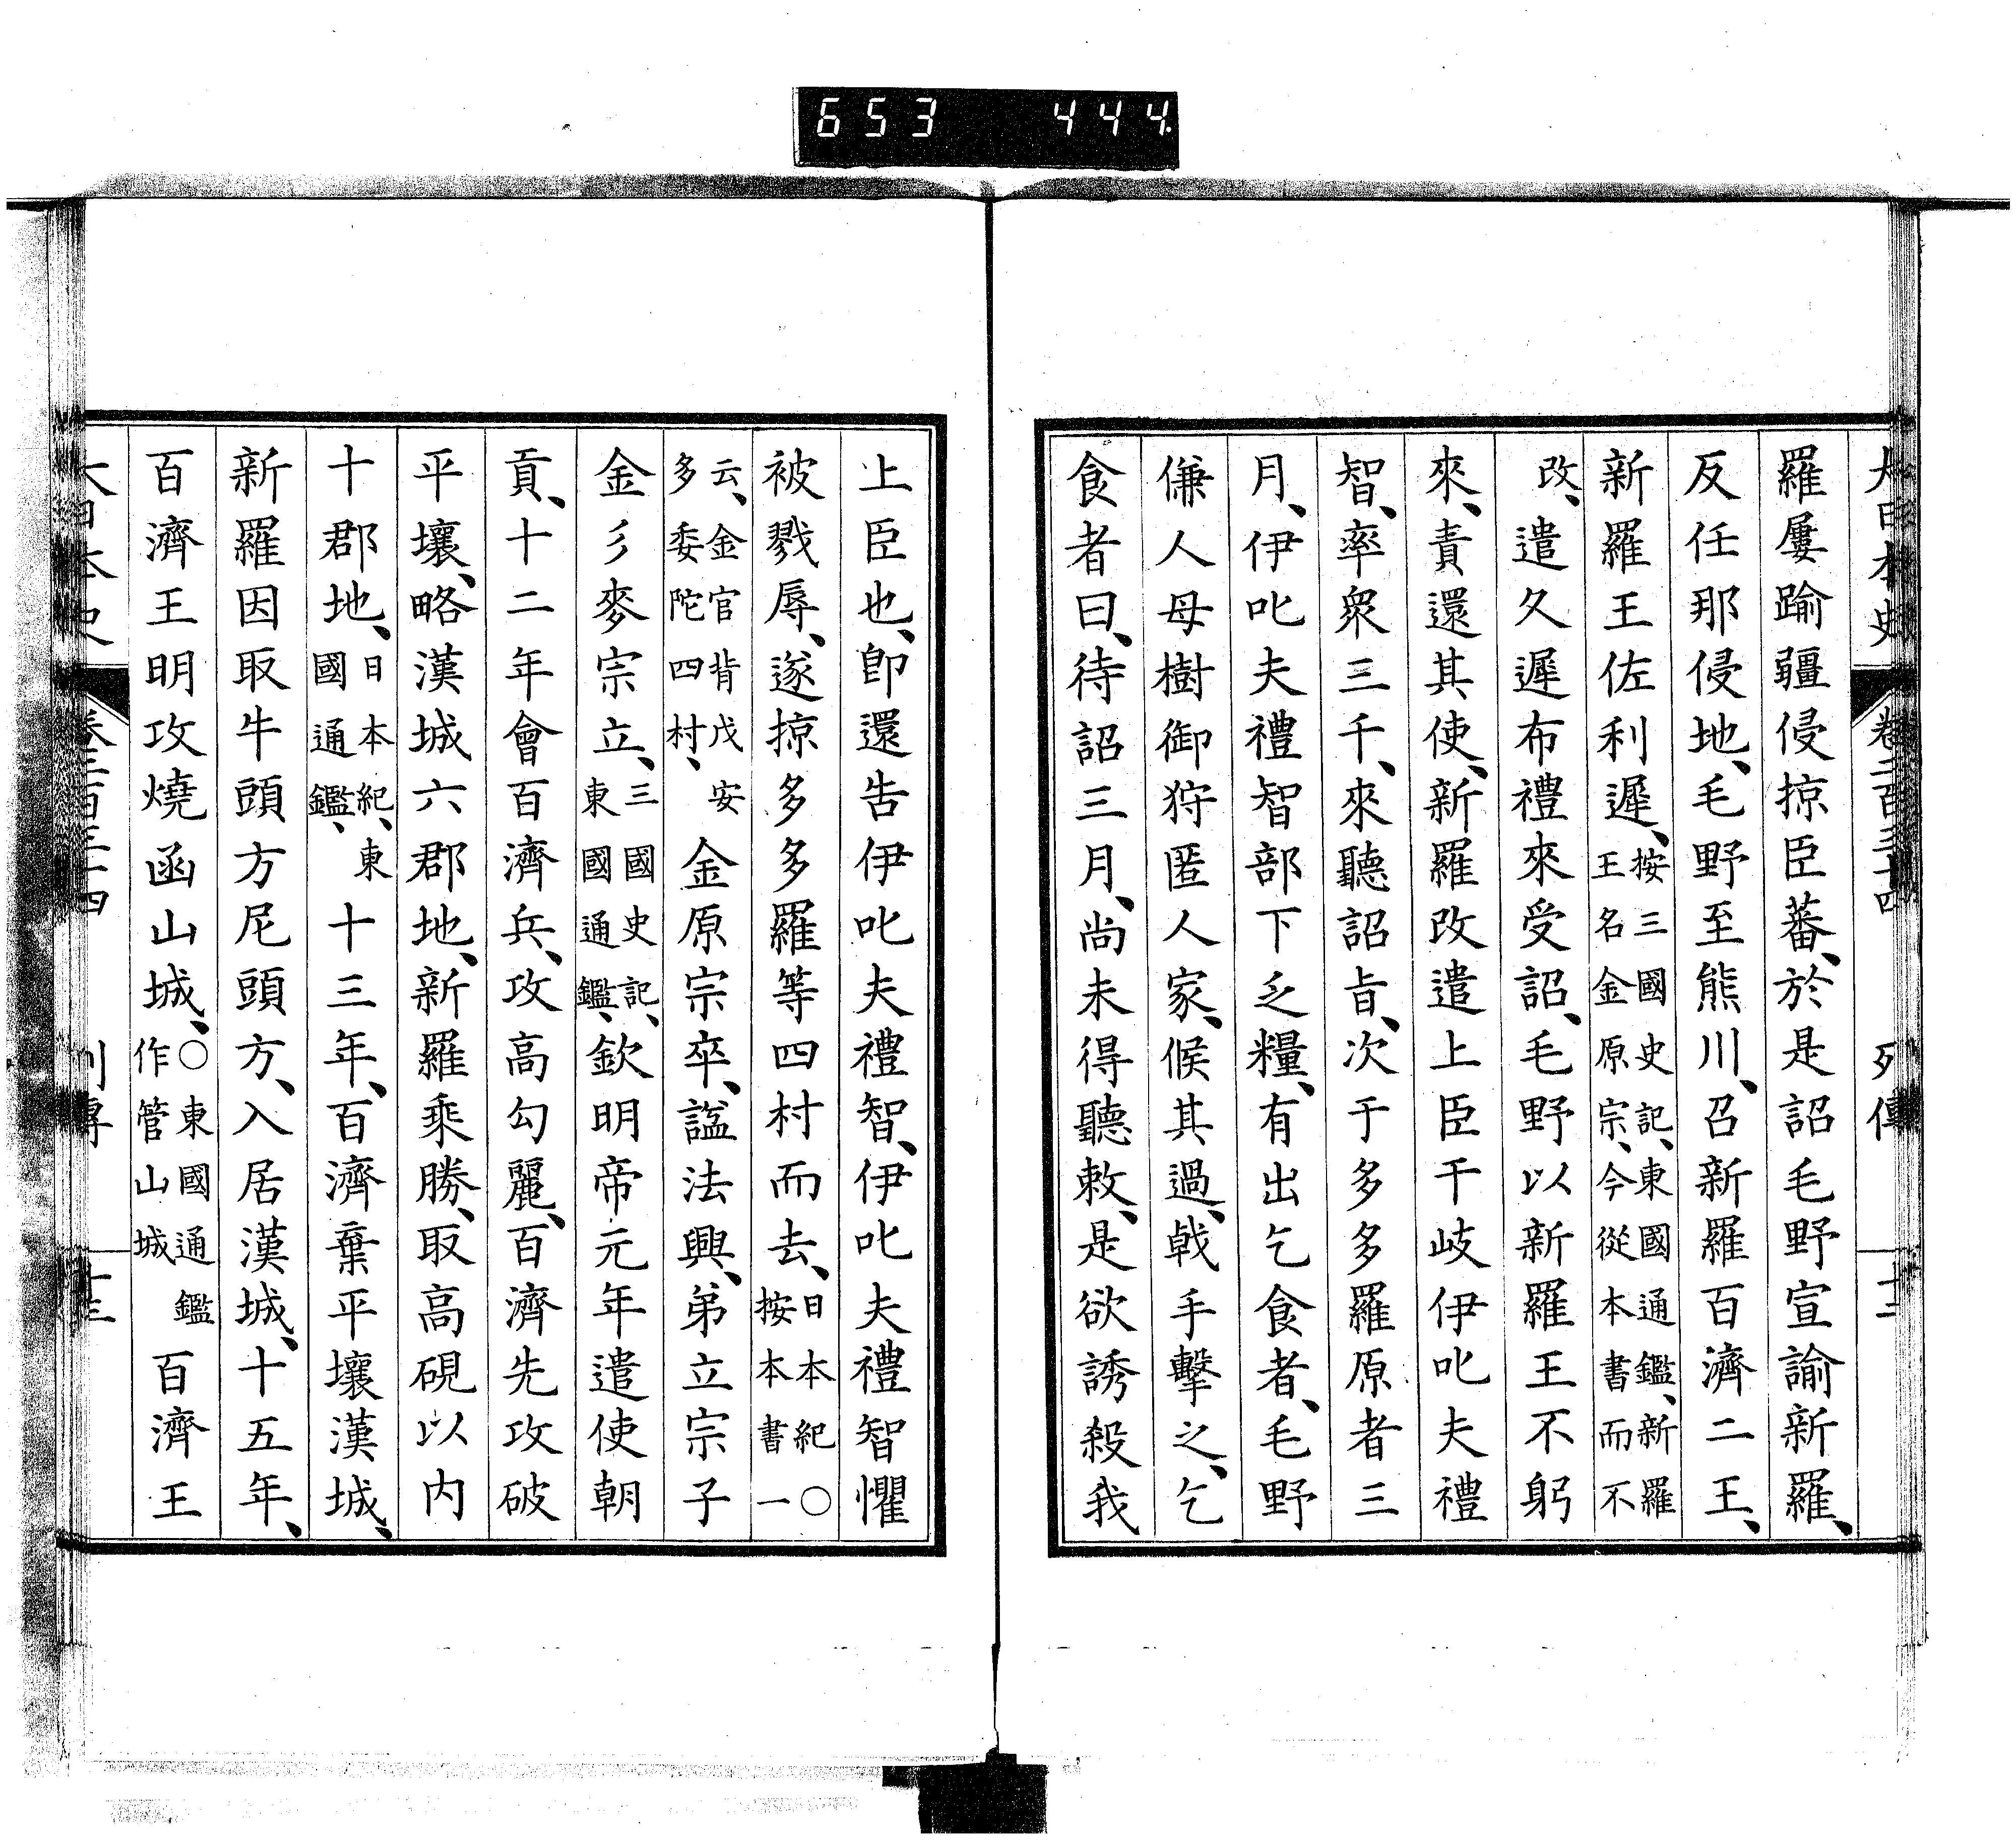 653 444
大日本史 卷二百三十四 列傳 十二
羅屢踰疆侵掠臣蕃、於是詔毛野宣諭新羅、
反任那侵地、毛野至熊川、召新羅百濟二王、
新羅王佐利遲、按三國史記、東國通鑑、新羅王名金原宗、今從本書而不
改、遣久遲布禮來受詔、毛野以新羅王不躬
來、責還其使、新羅改遣上臣干岐伊叱夫禮
智、率衆三千、來聽詔旨、次于多多羅原者三
月、伊叱夫禮智部下乏糧、有出乞食者、毛野
傔人母樹御狩匿人家、候其過、戟手擊之、乞
食者曰、待詔三月、尚未得聽敕、是欲誘殺我
上臣也、卽還告伊叱夫禮智、伊叱夫禮智懼
被戮辱、遂掠多多羅等四村而去、日本紀○按本書一
云、金官背戊安多委陀四村、金原宗卒、謚法興、弟立宗子
金彡麥宗立、三國史記、東國通鑑、欽明帝元年遣使朝
貢、十二年會百濟兵、攻高勾麗、百濟先攻破
平壤、略漢城六郡地、新羅乘勝、取高硯以内
十郡地、日本紀、東國通鑑、十三年、百濟棄平壤漢城、
新羅因取牛頭方尼頭方、入居漢城、十五年、
百濟王明攻燒函山城、○東國通鑑作管山城百濟王
大日本史 卷二百三十四 列傳 十三